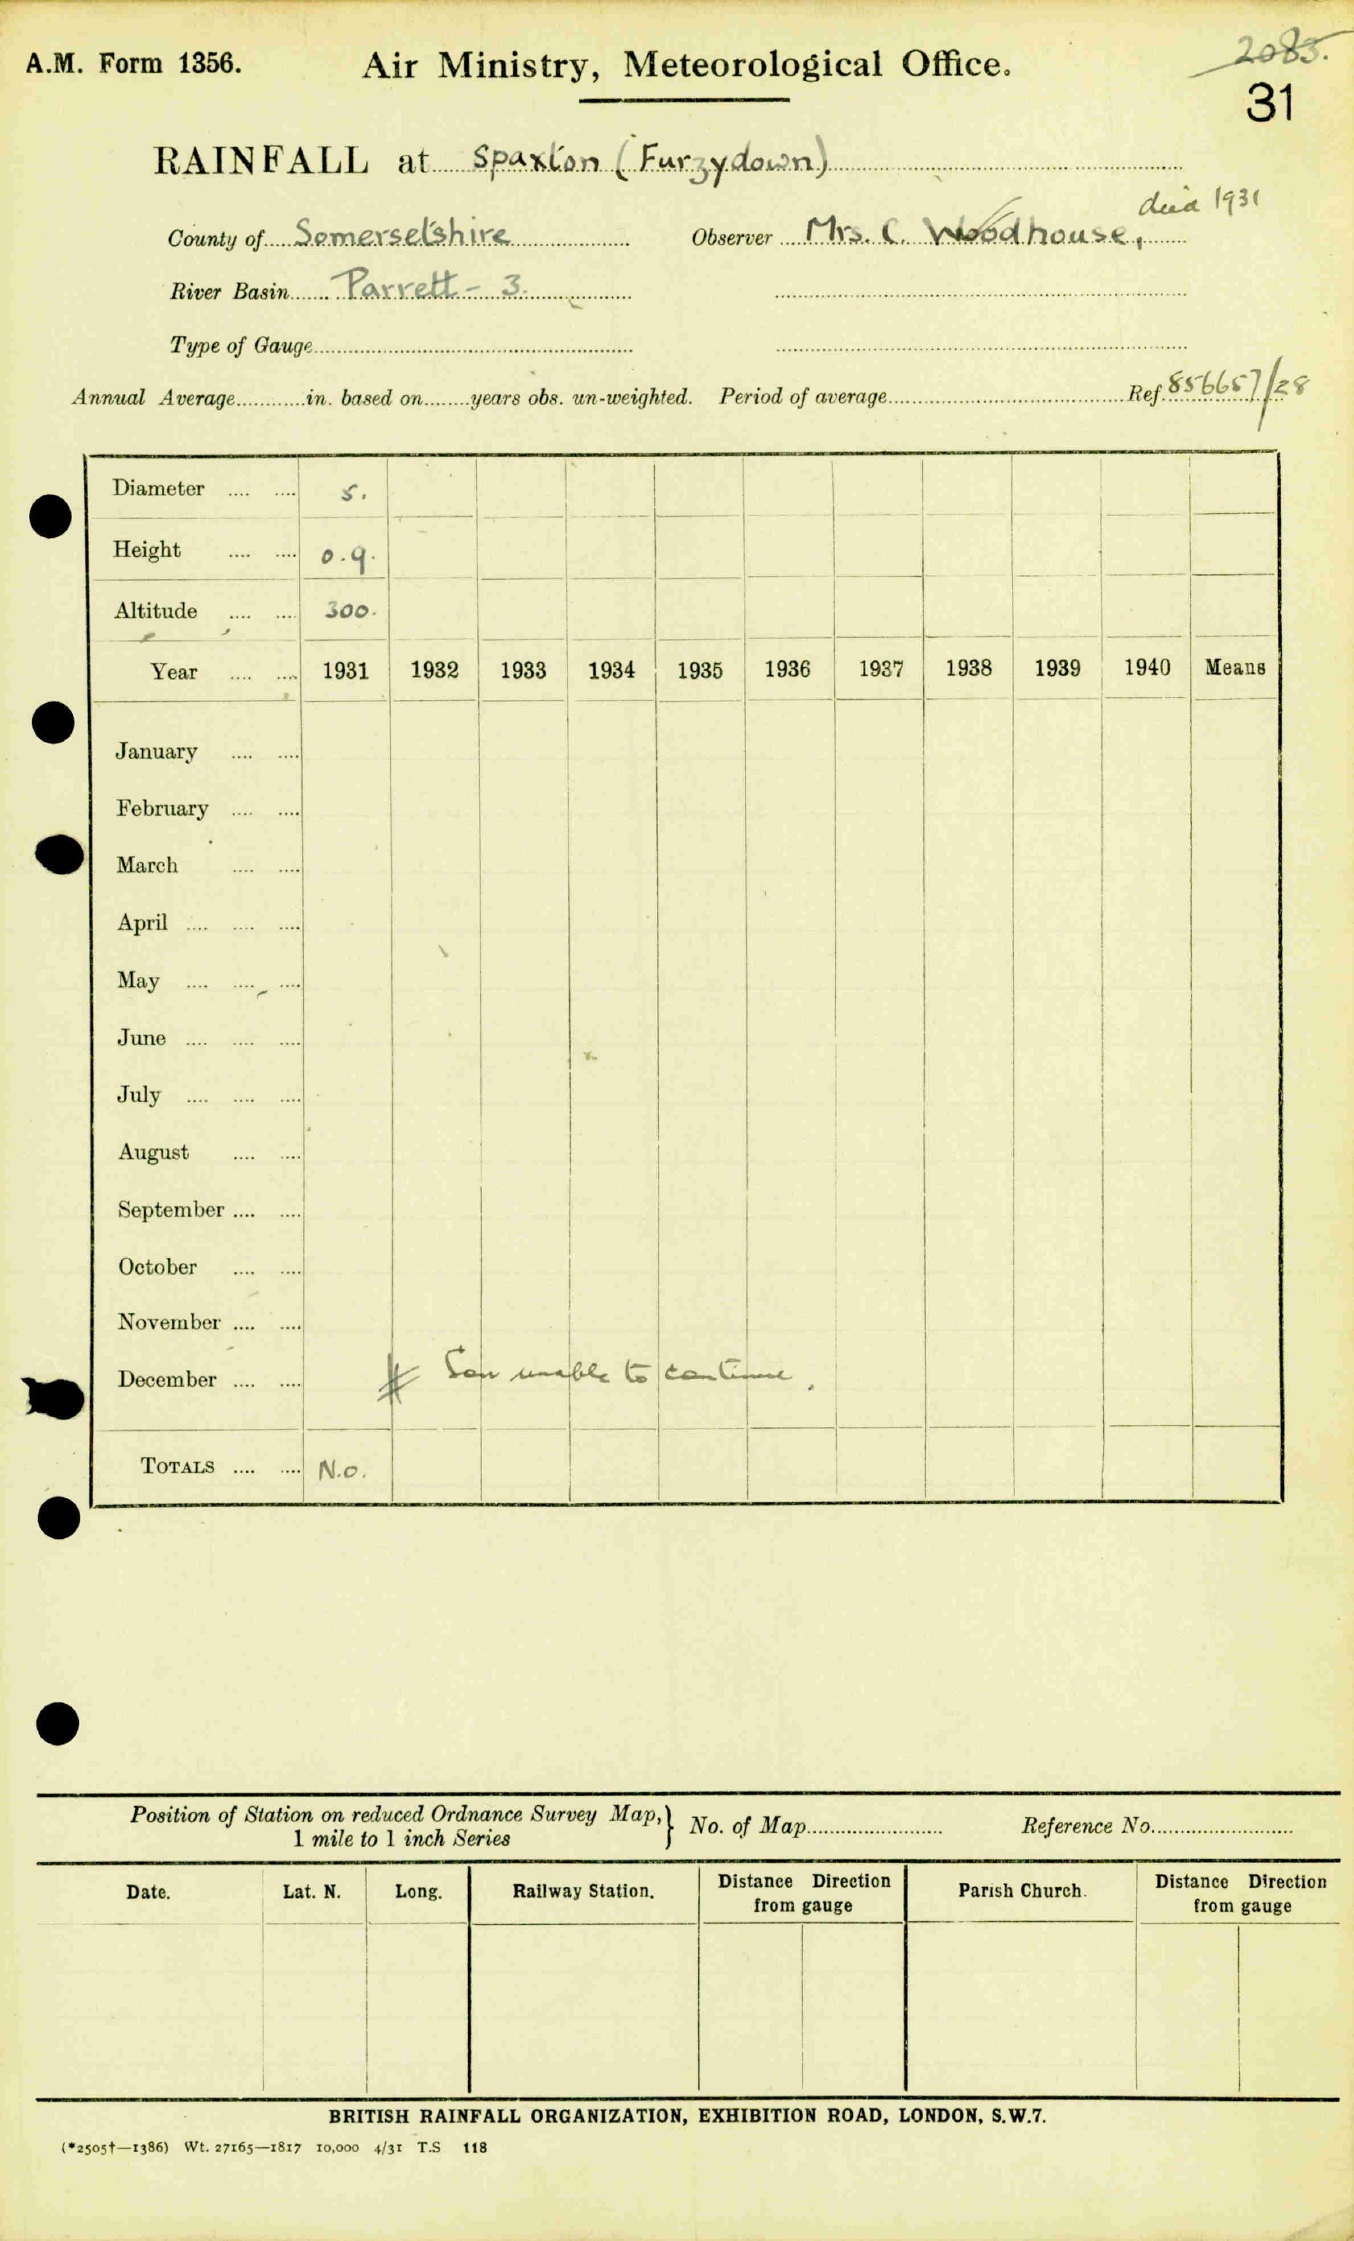 A.M. Form 1356.
Air Ministry, Meteorological Office.
2085.
31
RAINFALL at Spaxton (Furzydown)
died 1931
County of Somersetshire Observer Mrs. C. Woodhouse,
River Basin Parrett - 3.
Type of Gauge
Annual Average in. based on years obs. un-weighted. Period of average Ref. 856657/28
Diameter 5.
Height 0.9.
Altitude 300.
Year 1931 1932 1933 1934 1935 1936 1937 1938 1939 1940 Means
January
February
March
April
May
June
July
August
September
October
November
December Son unable to continue.
TOTALS N.o.
Position of Station on reduced Ordnance Survey Map, } No. of Map Reference No.
1 mile to 1 inch Series
Date. Lat. N. Long. Railway Station. Distance Direction from gauge Parish Church. Distance Direction from gauge
BRITISH RAINFALL ORGANIZATION, EXHIBITION ROAD, LONDON, S.W.7.
(*2505†—1386) Wt. 27165—1817 10,000 4/31 T.S 118